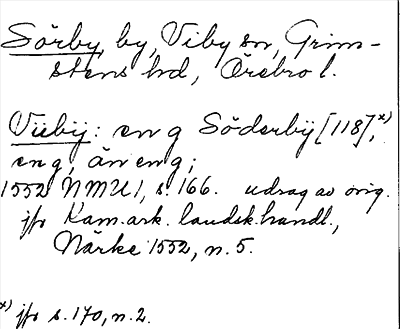 Sörby, by, Viby sn, Grim-
stens hd, Örebro l.
Viibÿ: en g Söderbÿ [118],x)
en g, än en g;
1552 NMU1, s. 166. udrag av orig.
jfr Kam.ark. landsk.handl.,
Närke 1552, n. 5.
x) jfr s. 170, n. 2.